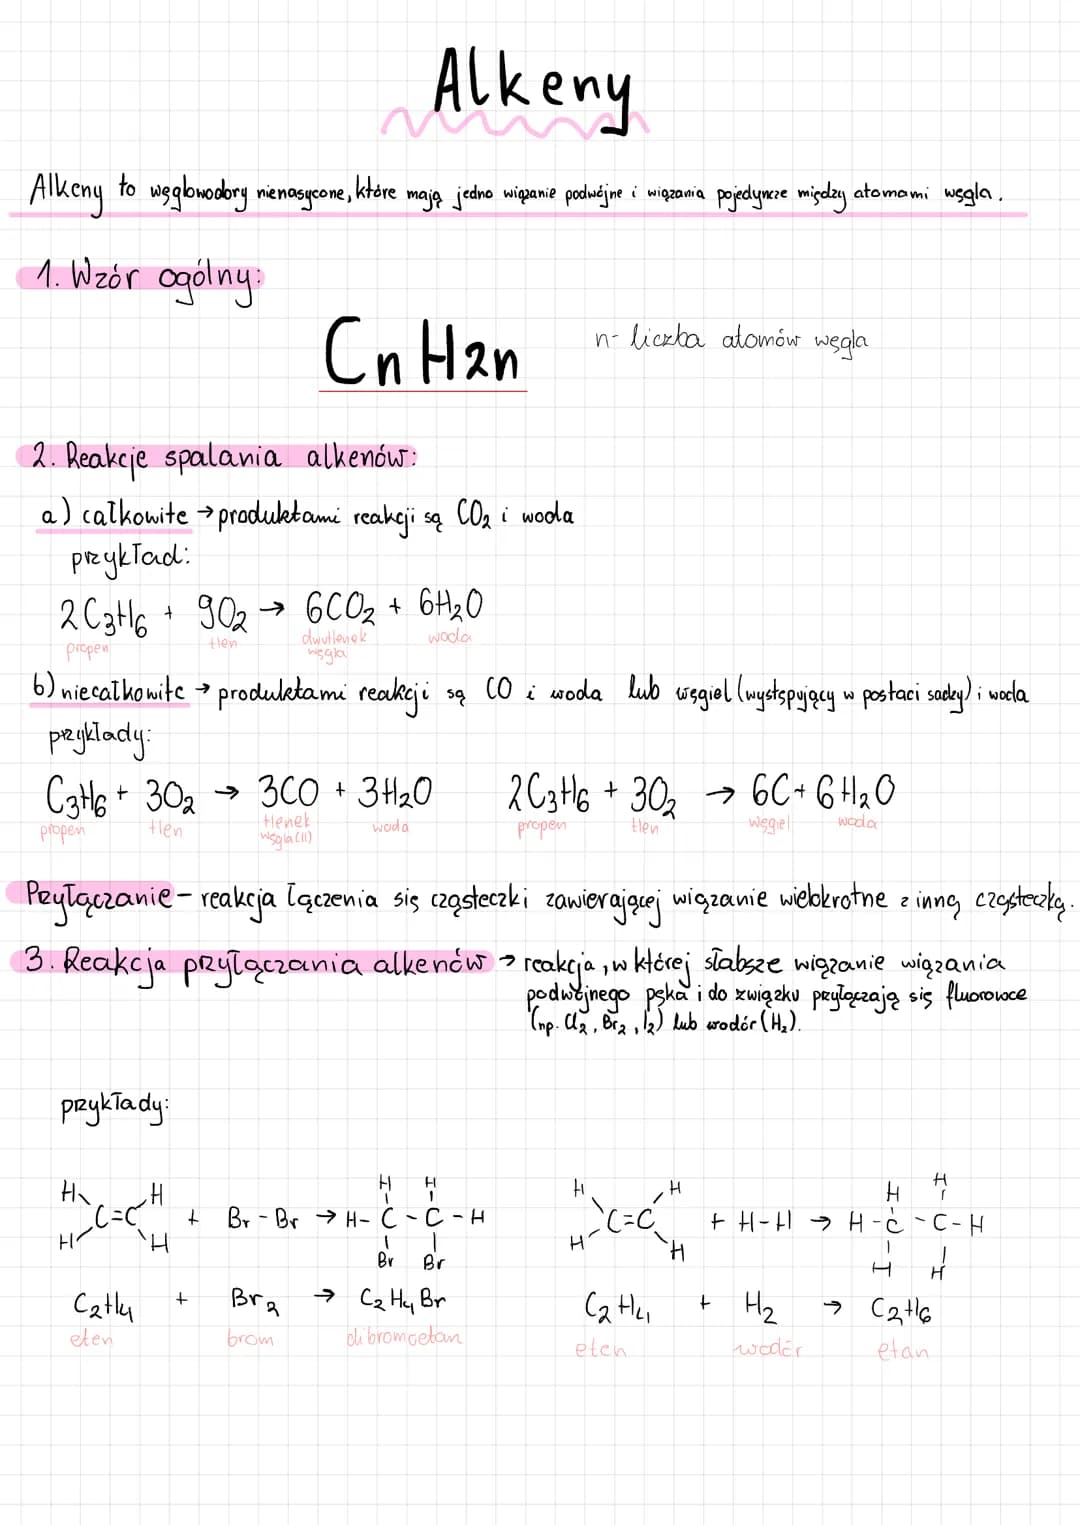 Alkeny
Alkeny to węglowodory nienasycone, które mają jedno wiązanie podwójne i wiązania pojedyncze między atomami węgla.
1. Wzór ogólny:
CnH2n
n- liczba atomów węgla
2. Reakcje spalania alkenów:
a) całkowite → produktami reakcji są CO₂ i woda
przykład:
2C₃H₆ + 9O₂ → 6CO₂ + 6H₂O
propen tlen dwutlenek węgla woda
b) niecałkowite → produktami reakcji są CO i woda lub węgiel (występujący w postaci sadzy) i woda
przykłady:
C₃H₆ + 3O₂ → 3CO + 3H₂O 2C₃H₆ + 3O₂ → 6C + 6H₂O
propen tlen tlenek węgla(II) woda propen tlen węgiel woda
Przyłączanie - reakcja łączenia się cząsteczki zawierającej wiązanie wielokrotne z inną cząsteczką.
3. Reakcja przyłączania alkenów → reakcja, w której słabsze wiązanie wiązania
podwójnego pęka i do związku przyłączają się fluorowce
(np. Cl₂, Br₂, I₂) lub wodór (H₂).
przykłady:
H H H H H H H H
C=C + Br - Br → H - C - C - H C=C + H-H → H - C - C - H
H H Br Br H H H H
C₂H₄ + Br₂ → C₂H₄Br C₂H₄ + H₂ → C₂H₆
eten brom dibromoetan eten wodór etan